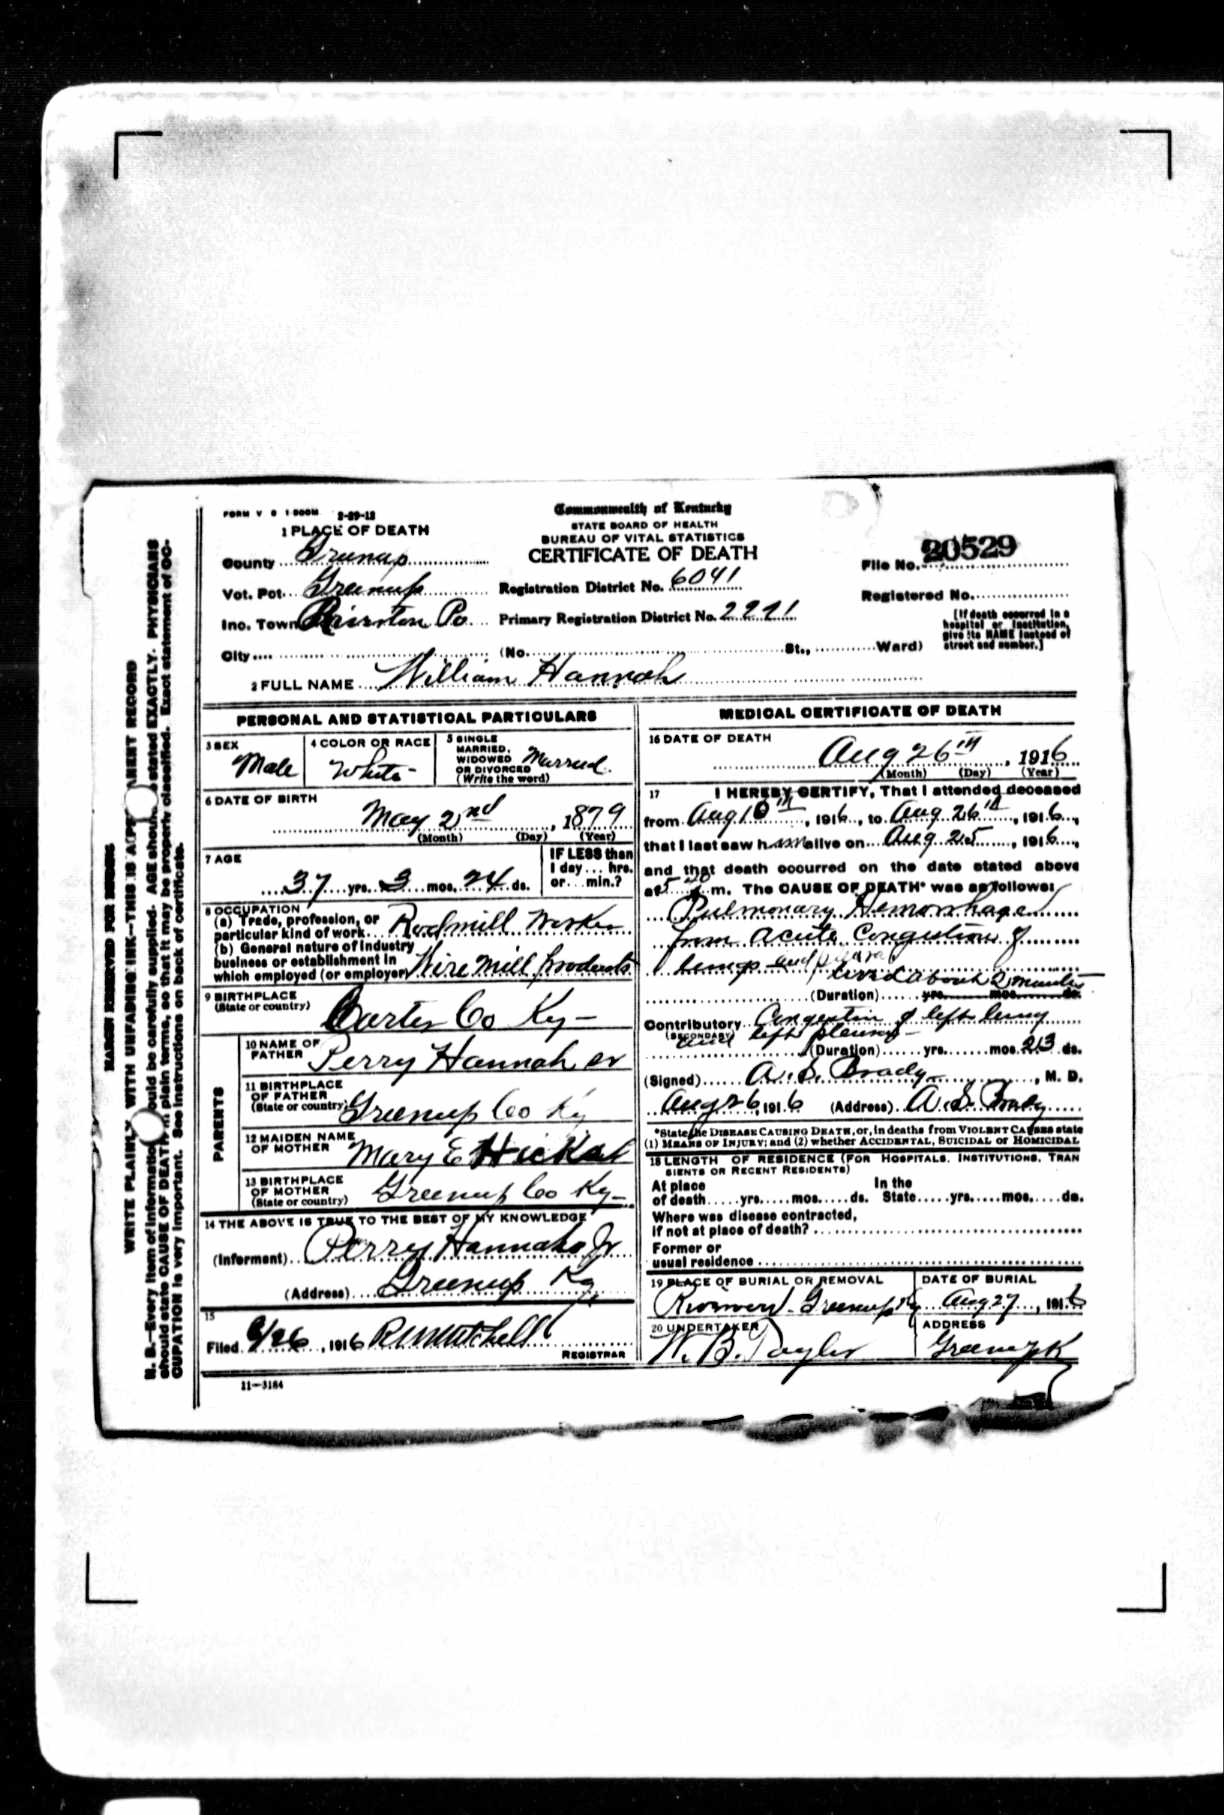 FORM V S 1-500M 2-29-12
1 PLACE OF DEATH
County Greenup
Vot. Pct. Greenup
Inc. Town Po
City
Commonwealth of Kentucky
STATE BOARD OF HEALTH
BUREAU OF VITAL STATISTICS
CERTIFICATE OF DEATH
Registration District No. 6041
Primary Registration District No. 2221
(No. St., Ward)
File No. 20529
Registered No.
[If death occurred in a
hospital or institution,
give its NAME instead of
street and number.]
2 FULL NAME William Hannah
PERSONAL AND STATISTICAL PARTICULARS
3 SEX
Male
4 COLOR OR RACE
White
5 SINGLE
MARRIED,
WIDOWED
OR DIVORCED
(Write the word)
Married
6 DATE OF BIRTH
May 2nd, 1879
(Month) (Day) (Year)
7 AGE
37 yrs. 3 mos. 24 ds.
IF LESS than
1 day ... hrs.
or ... min.?
8 OCCUPATION
(a) Trade, profession, or
particular kind of work Rodmill Worker
(b) General nature of Industry
business or establishment in
which employed (or employer) Wire Mill products
9 BIRTHPLACE
(State or country)
Carter Co Ky
PARENTS
10 NAME OF
FATHER
Perry Hannah sr
11 BIRTHPLACE
OF FATHER
(State or country)
Greenup Co Ky
12 MAIDEN NAME
OF MOTHER
Mary E
13 BIRTHPLACE
OF MOTHER
(State or country)
Greenup Co Ky
14 THE ABOVE IS TRUE TO THE BEST OF MY KNOWLEDGE
(Informant) Perry Hannah Jr
(Address) Greenup Ky
15
Filed 8/26, 1916 Mitchell
REGISTRAR
11-3184
MEDICAL CERTIFICATE OF DEATH
16 DATE OF DEATH
Aug 26th, 1916
(Month) (Day) (Year)
17 I HEREBY CERTIFY, That I attended deceased
from Aug 10th, 1916, to Aug 26th, 1916,
that I last saw him alive on Aug 25, 1916,
and that death occurred on the date stated above
at m. The CAUSE OF DEATH* was as follows:
Pulmonary Hemorrhage
from acute Congestion of
lungs and pleura
lived about 2 minutes
(Duration) yrs. mos. ds.
Contributory Congestion of left lung
(SECONDARY) and left pleura
(Duration) yrs. mos. 23 ds.
(Signed) A. S. Brady, M. D.
Aug 26 1916 (Address) A. S. Brady
*State the DISEASE CAUSING DEATH, or, in deaths from VIOLENT CAUSES state
(1) MEANS OF INJURY; and (2) whether ACCIDENTAL, SUICIDAL or HOMICIDAL
18 LENGTH OF RESIDENCE (FOR HOSPITALS, INSTITUTIONS, TRAN
SIENTS OR RECENT RESIDENTS)
At place
of death yrs. mos. ds.
In the
State yrs. mos. ds.
Where was disease contracted,
if not at place of death?
Former or
usual residence
19 PLACE OF BURIAL OR REMOVAL
Riverview Greenup Ky
DATE OF BURIAL
Aug 27, 1916
20 UNDERTAKER
W. B. Taylor
ADDRESS
Greenup K
MARGIN RESERVED FOR BINDING
WRITE PLAINLY WITH UNFADING INK—THIS IS A PERMANENT RECORD
N. B.—Every item of information should be carefully supplied. AGE should be stated EXACTLY. PHYSICIANS
should state CAUSE OF DEATH in plain terms, so that it may be properly classified. Exact statement of OC-
CUPATION is very important. See instructions on back of certificate.